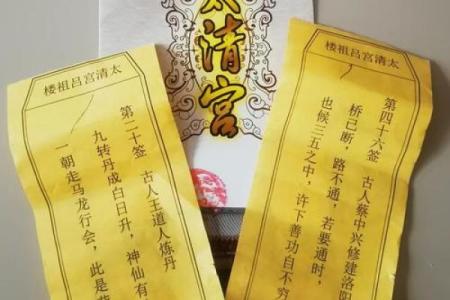 太清宫
太清宫吕祖楼
第二十签 古人王道人炼丹
九转丹成白日升，神仙有
一朝走马龙行会，此是
太清宫吕祖楼
第四十六签 古人蔡中兴修建洛阳
桥已断，路不通，若要通时，
也候三五之中，许下善功自不穷